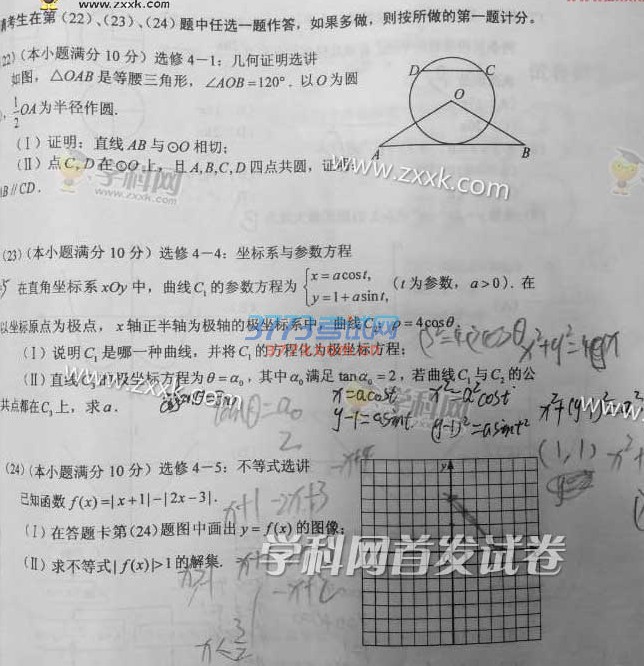 www.zxxk.com
考生在第(22)、(23)、(24)题中任选一题作答，如果多做，则按所做的第一题计分。
22)(本小题满分10分) 选修4－1：几何证明选讲
如图，△OAB是等腰三角形，∠AOB=120°. 以O为圆
，1/2 OA为半径作圆.
(Ⅰ) 证明：直线AB与⊙O相切；
(Ⅱ) 点C,D在⊙O上，且A,B,C,D四点共圆，证明：
AB∥CD.
D C
O
A B
学科网
www.zxxk.com
www.zxxk.com
(23)(本小题满分10分) 选修4－4：坐标系与参数方程
在直角坐标系xOy中，曲线C₁的参数方程为 { x=acost, y=1+asint, (t为参数，a>0). 在
以坐标原点为极点，x轴正半轴为极轴的极坐标系中，曲线C₂：ρ=4cosθ.
3773考试网
(Ⅰ) 说明C₁是哪一种曲线，并将C₁的方程化为极坐标方程；
x²+y²=4x
(Ⅱ) 直线C₃的极坐标方程为θ=α₀，其中α₀满足tanα₀=2，若曲线C₁与C₂的公
共点都在C₃上，求a.
www.zxxk.com
x=acost x²=a²cost
y-1=asint (y-1)²=asint²
tanθ=a₀
2
(1,1)
(24)(本小题满分10分) 选修4－5：不等式选讲
已知函数f(x)=|x+1|−|2x−3|.
x+1-2x+3
-x+4
(Ⅰ) 在答题卡第(24)题图中画出y=f(x)的图像；
(Ⅱ) 求不等式|f(x)|>1的解集.
学科网首发试卷
y
x<3/2